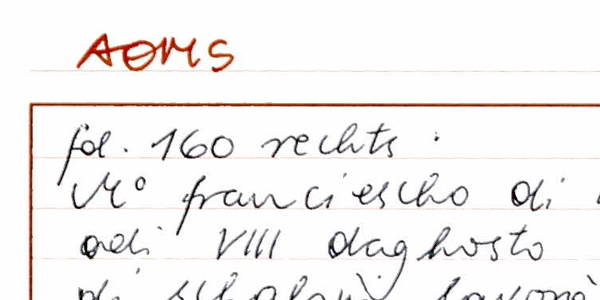 AOMS
fol. 160 rechts.
Mo franciescho di
adi VIII daghosto
di